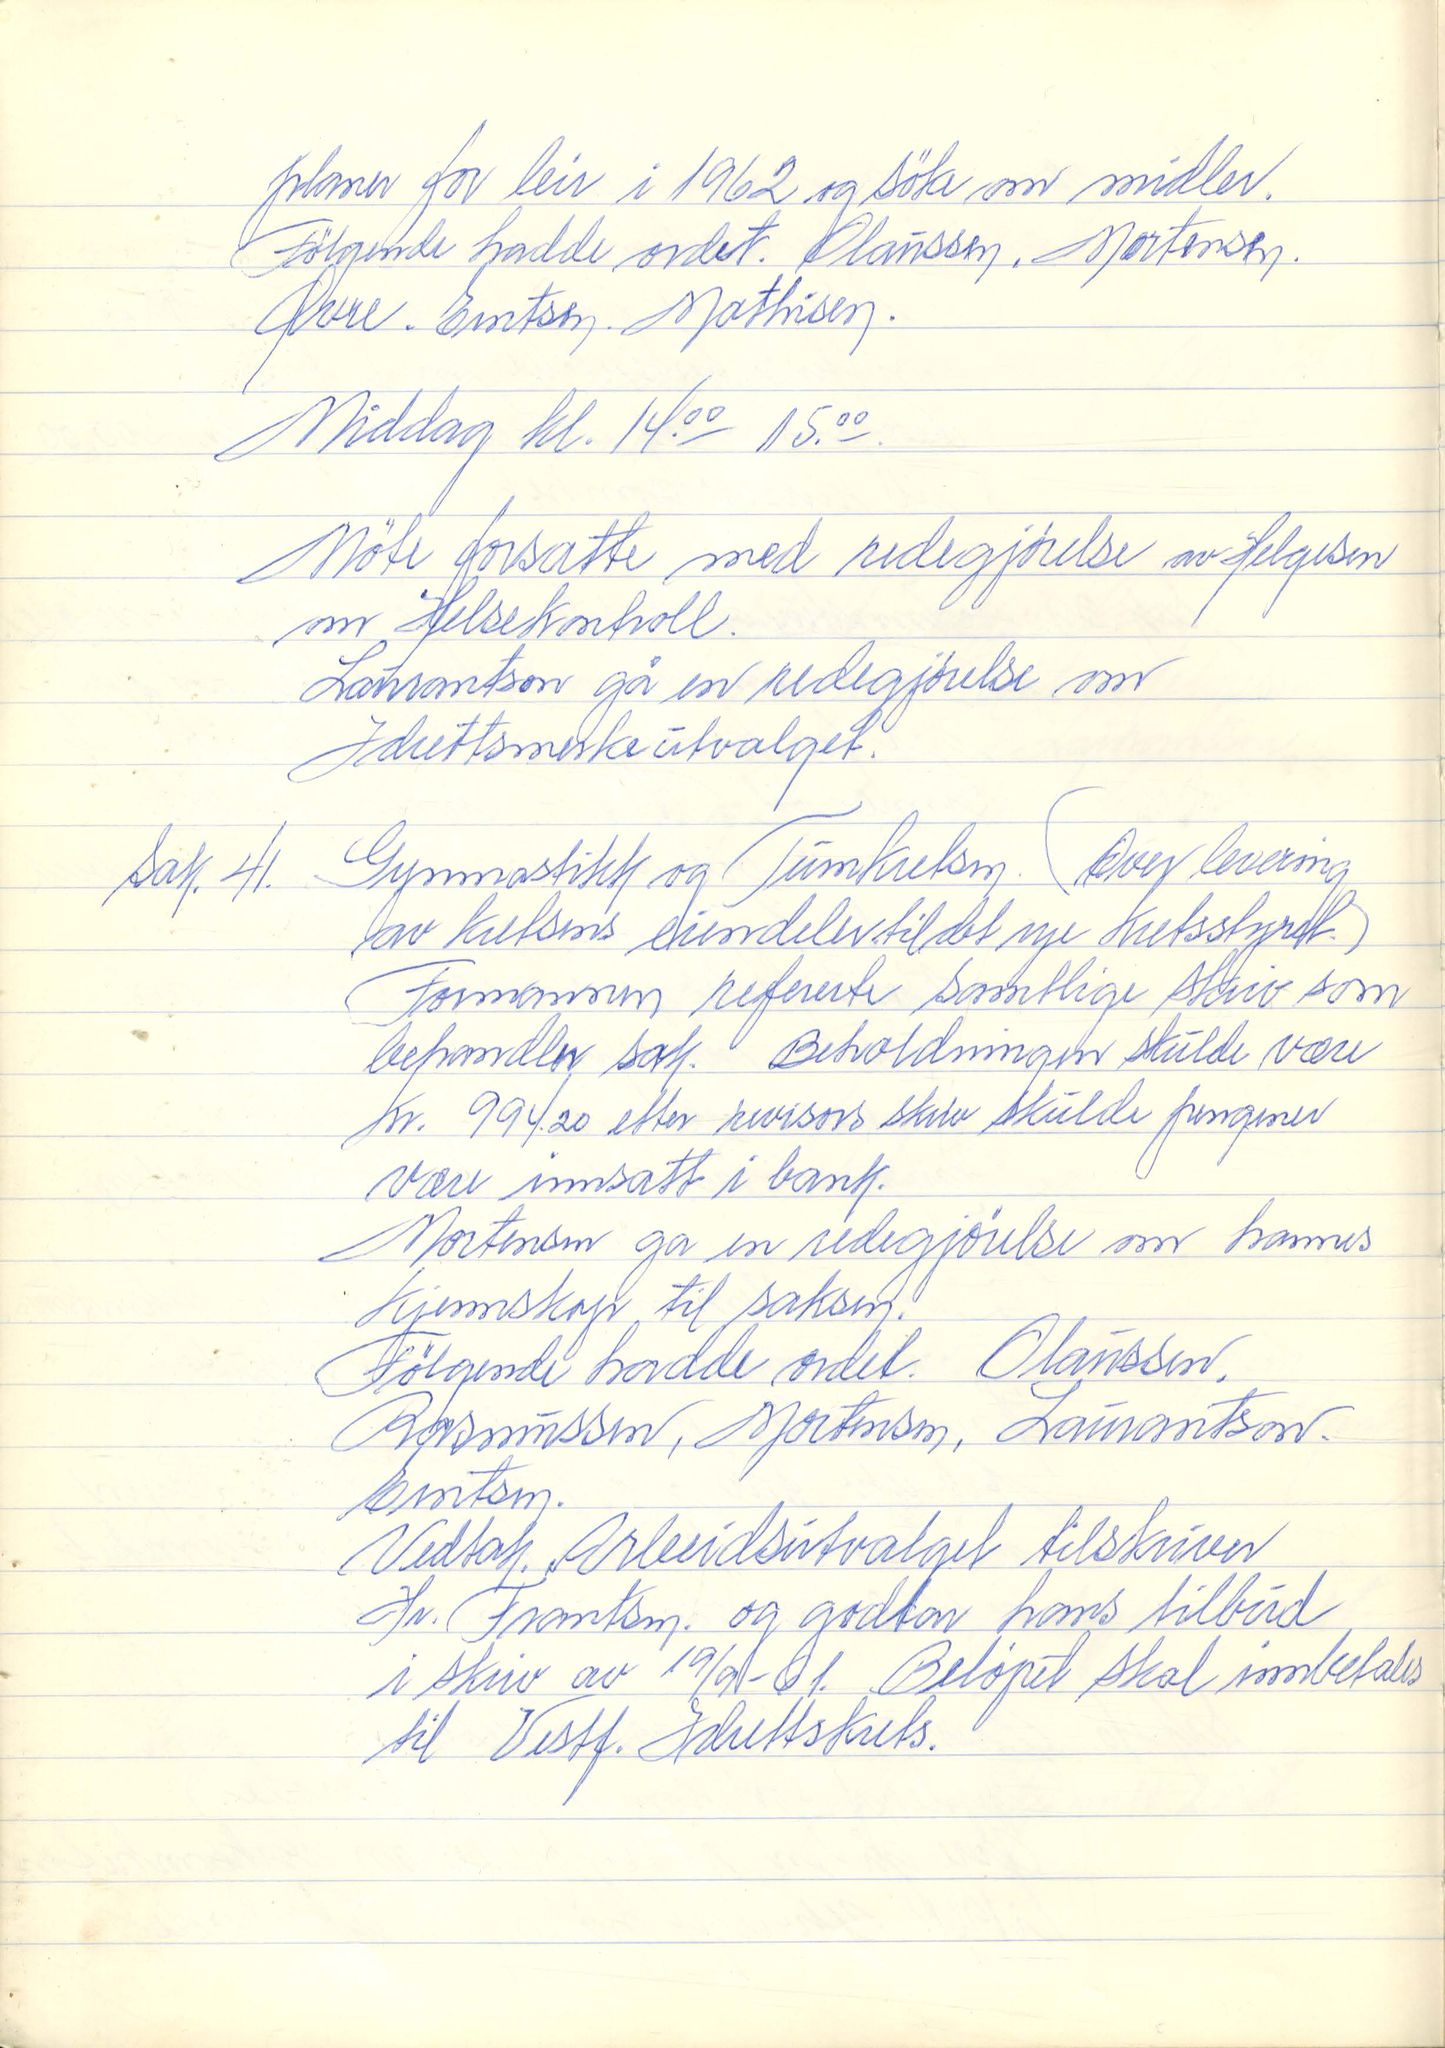 planer for leir i 1962 og söke om midler.
Følgende hadde ordet. Olaussen, Mortensen.
Øvre. Emtsen. Mathisen.
Middag kl. 14.00 15.00.
Möte forsatte med redegjörelse av Helgesen
om Helsekontroll.
Laurantson gå en redegjörelse om
Idrettsmerkeutvalget.
Sak. 41. Gymnastikk og Turnkretsen. (Over levering
av kretsens eiendeler til det nye kretsstyret.)
Formannen refererte samtlige skriv som
behandler sak. Beholdningen skulde være
kr. 994.20 etter revisors skriv skulde pengener
være innsatt i bank.
Mortensen ga en redegjörelse om hannes
kjennskap til saksen.
Følgende hadde ordet. Olaussen,
Rasmussen, Mortensen, Laurantson.
Emtsen.
Vedtak. Arbeidsutvalget tilskriver
Hr. Frantsen. og godtar hans tilbud
i skriv av 19/9-61. Beløpet skal innbetales
til Vestf. Idrettskrets.